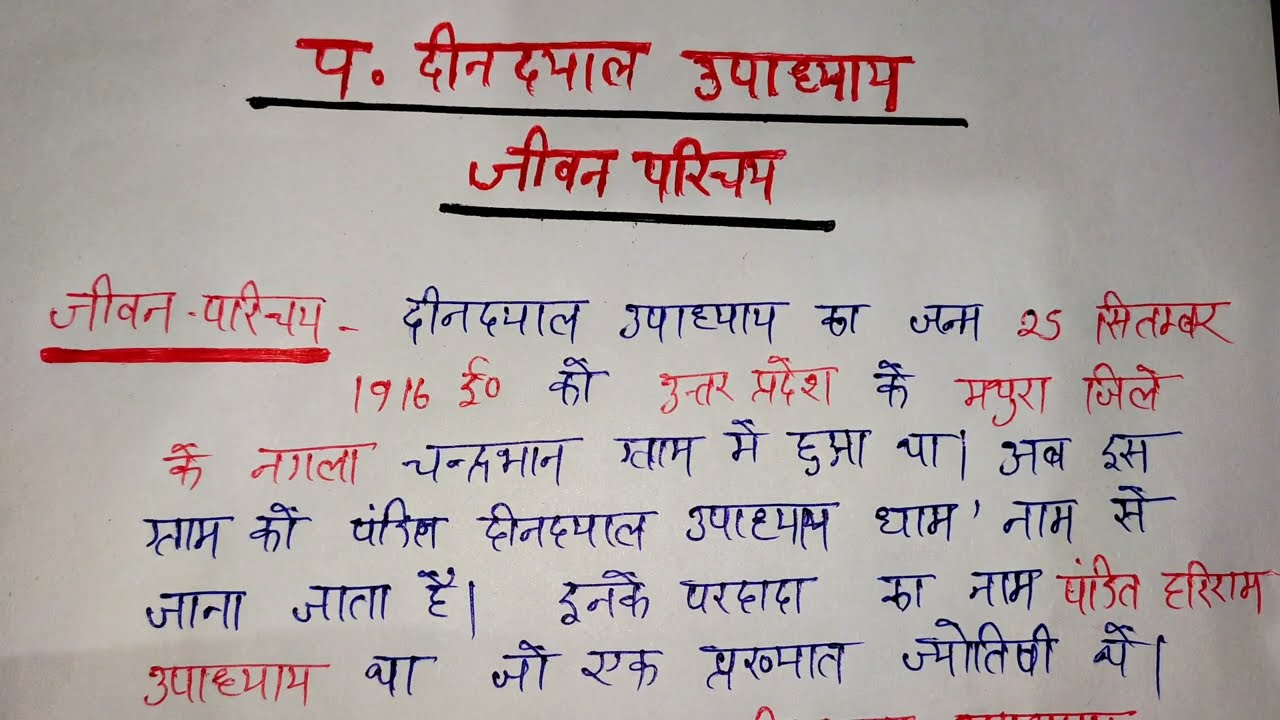 प. दीनदयाल उपाध्याय
जीवन परिचय
जीवन-परिचय - दीनदयाल उपाध्याय का जन्म 25 सितम्बर
1916 ई० को उत्तर प्रदेश के मथुरा जिले
के नगला चन्द्रभान ग्राम में हुआ था। अब इस
ग्राम को पंडित दीनदयाल उपाध्याय धाम' नाम से
जाना जाता है। इनके परदादा का नाम पंडित हरिराम
उपाध्याय था जो एक प्रख्यात ज्योतिषी थे।